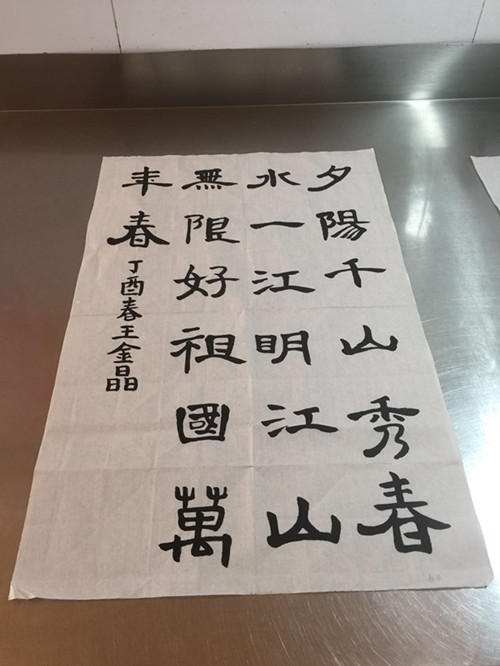 夕陽千山秀春
水一江明江山
無限好祖國萬
年春
丁酉春王金晶